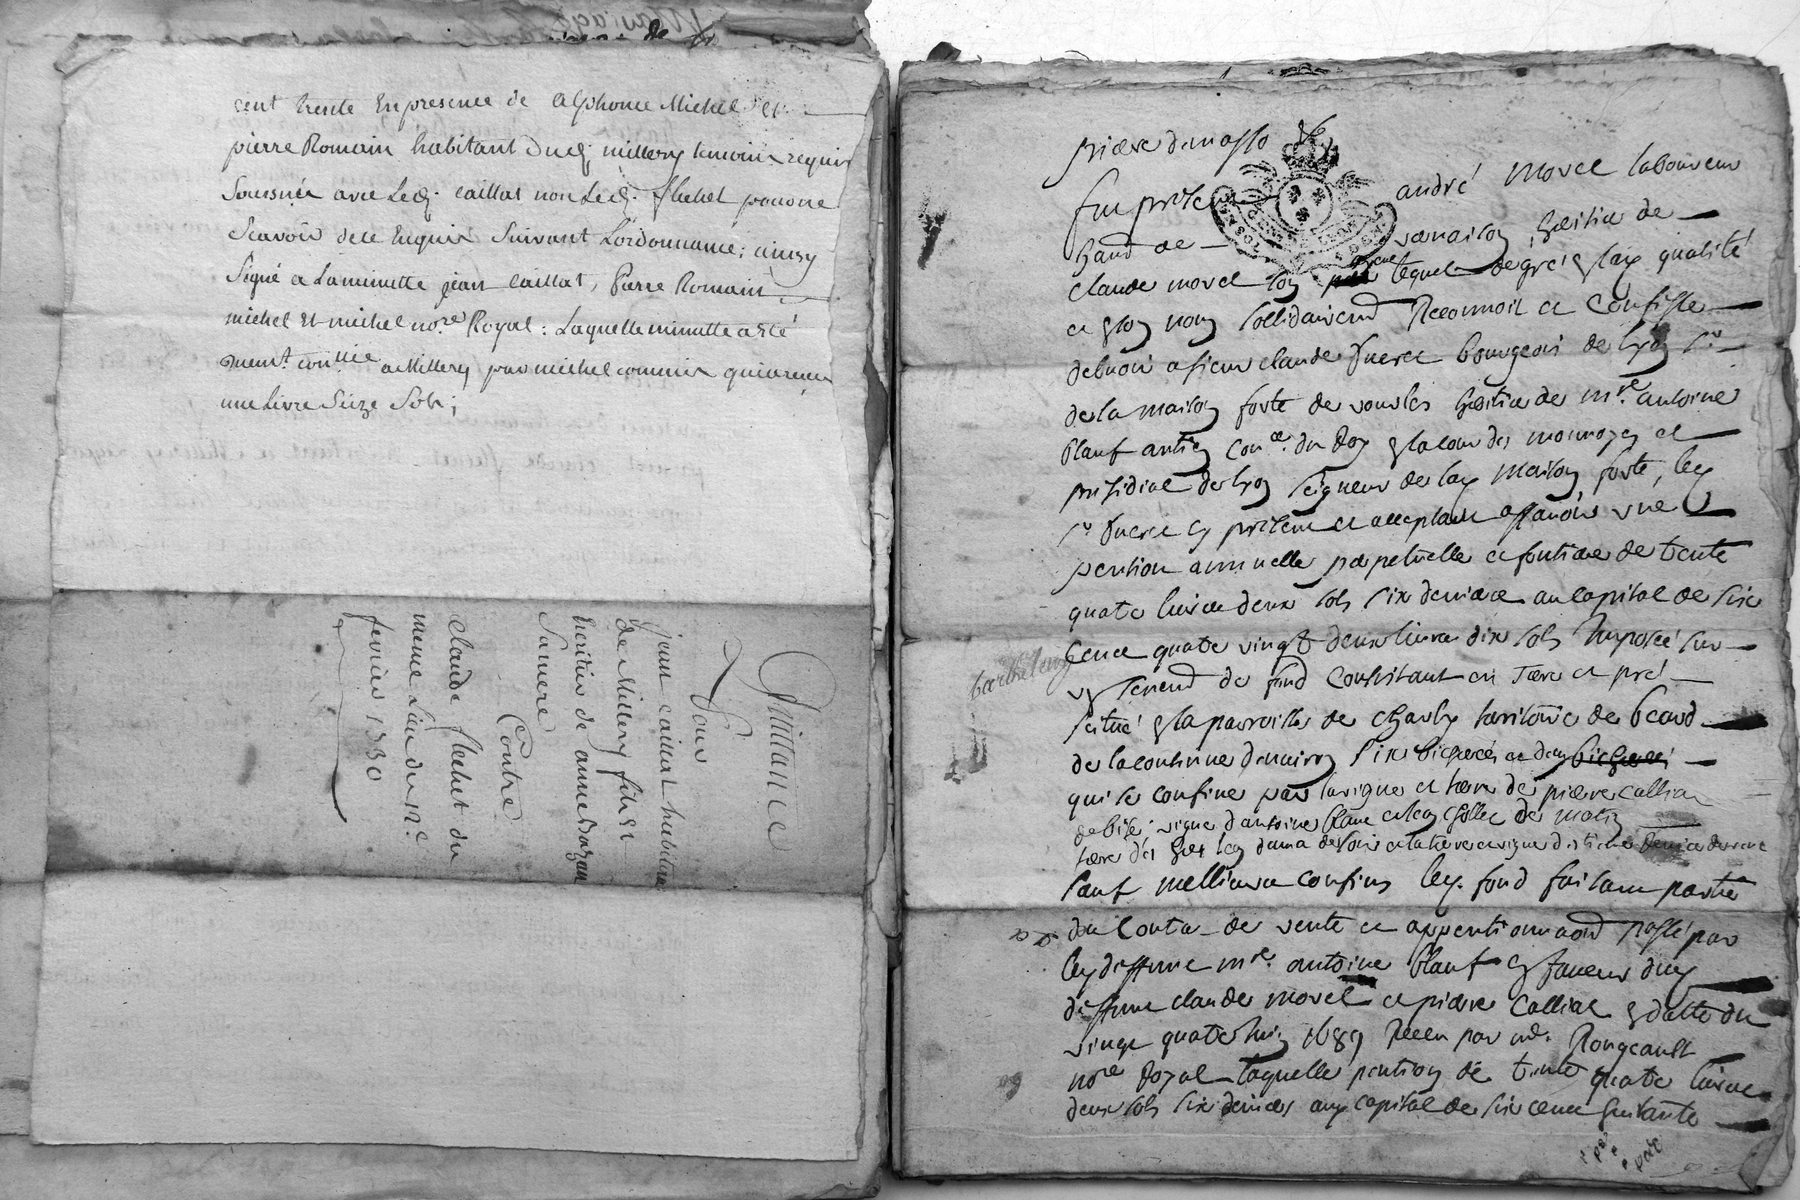 cent trente En presence de alphonce Michel et
pierre Romain habitant Dud. millery temoins requis
Soussnés avec Led. caillat non Led. flachet pour ne
Scavoir de ce Enquis Suivant Lordonnance; ainsy
Signé a La minutte jean caillat, Pierre Romain
michel Et michel nore Royal: Laquelle minutte a esté
a Millery par michel commis qui a receu
une Livre Seize Sols;
Quittance
Pour
jean caillat habitant
de Millery fils et
heritier de anne Bazan
Sa mere
Contre
claude flachet du
meme Lieu du 12e
fevrier 1730
fut present andré morel laboureur
heritier de
claude morel son lequel de gré qualité
Reconnoit et Confesse
debvoir a sieur claude bourgeois de Lyon
de la maison forte de vourles heritier de mre. antoine
blauf antien coner. du Roy en la cour des monnoyes et
presidial de lyon seigneur de lad. maison forte, led.
sr present et acceptant assavoir une
pention annuelle perpetuelle et fontiere de trente
quatre livres deux sols six deniers au capital de six
cent quatre vingt deux livres dix sols Imposée sur
barthelemy
un tenement de fond Consistant en Terre et pré
scitué en la parroisse de charly territoire de
de la contenue denviron six bicherées
qui se confine par la vigne et terre de pierre calliat
de bise; vigne d'antoine blanc
sauf meilleurs confins led. fond faisant partie
du Contrat de vente et appentionnement passé par
led deffunt mre. antoine blauf en faveur dud
deffunt claude morel et pierre Calliat en datte du
vingt quatre 1689 Receu par me. Rougeault
nore Royal laquelle pention de trente quatre livres
deux sols six deniers au capital de six cent huitante